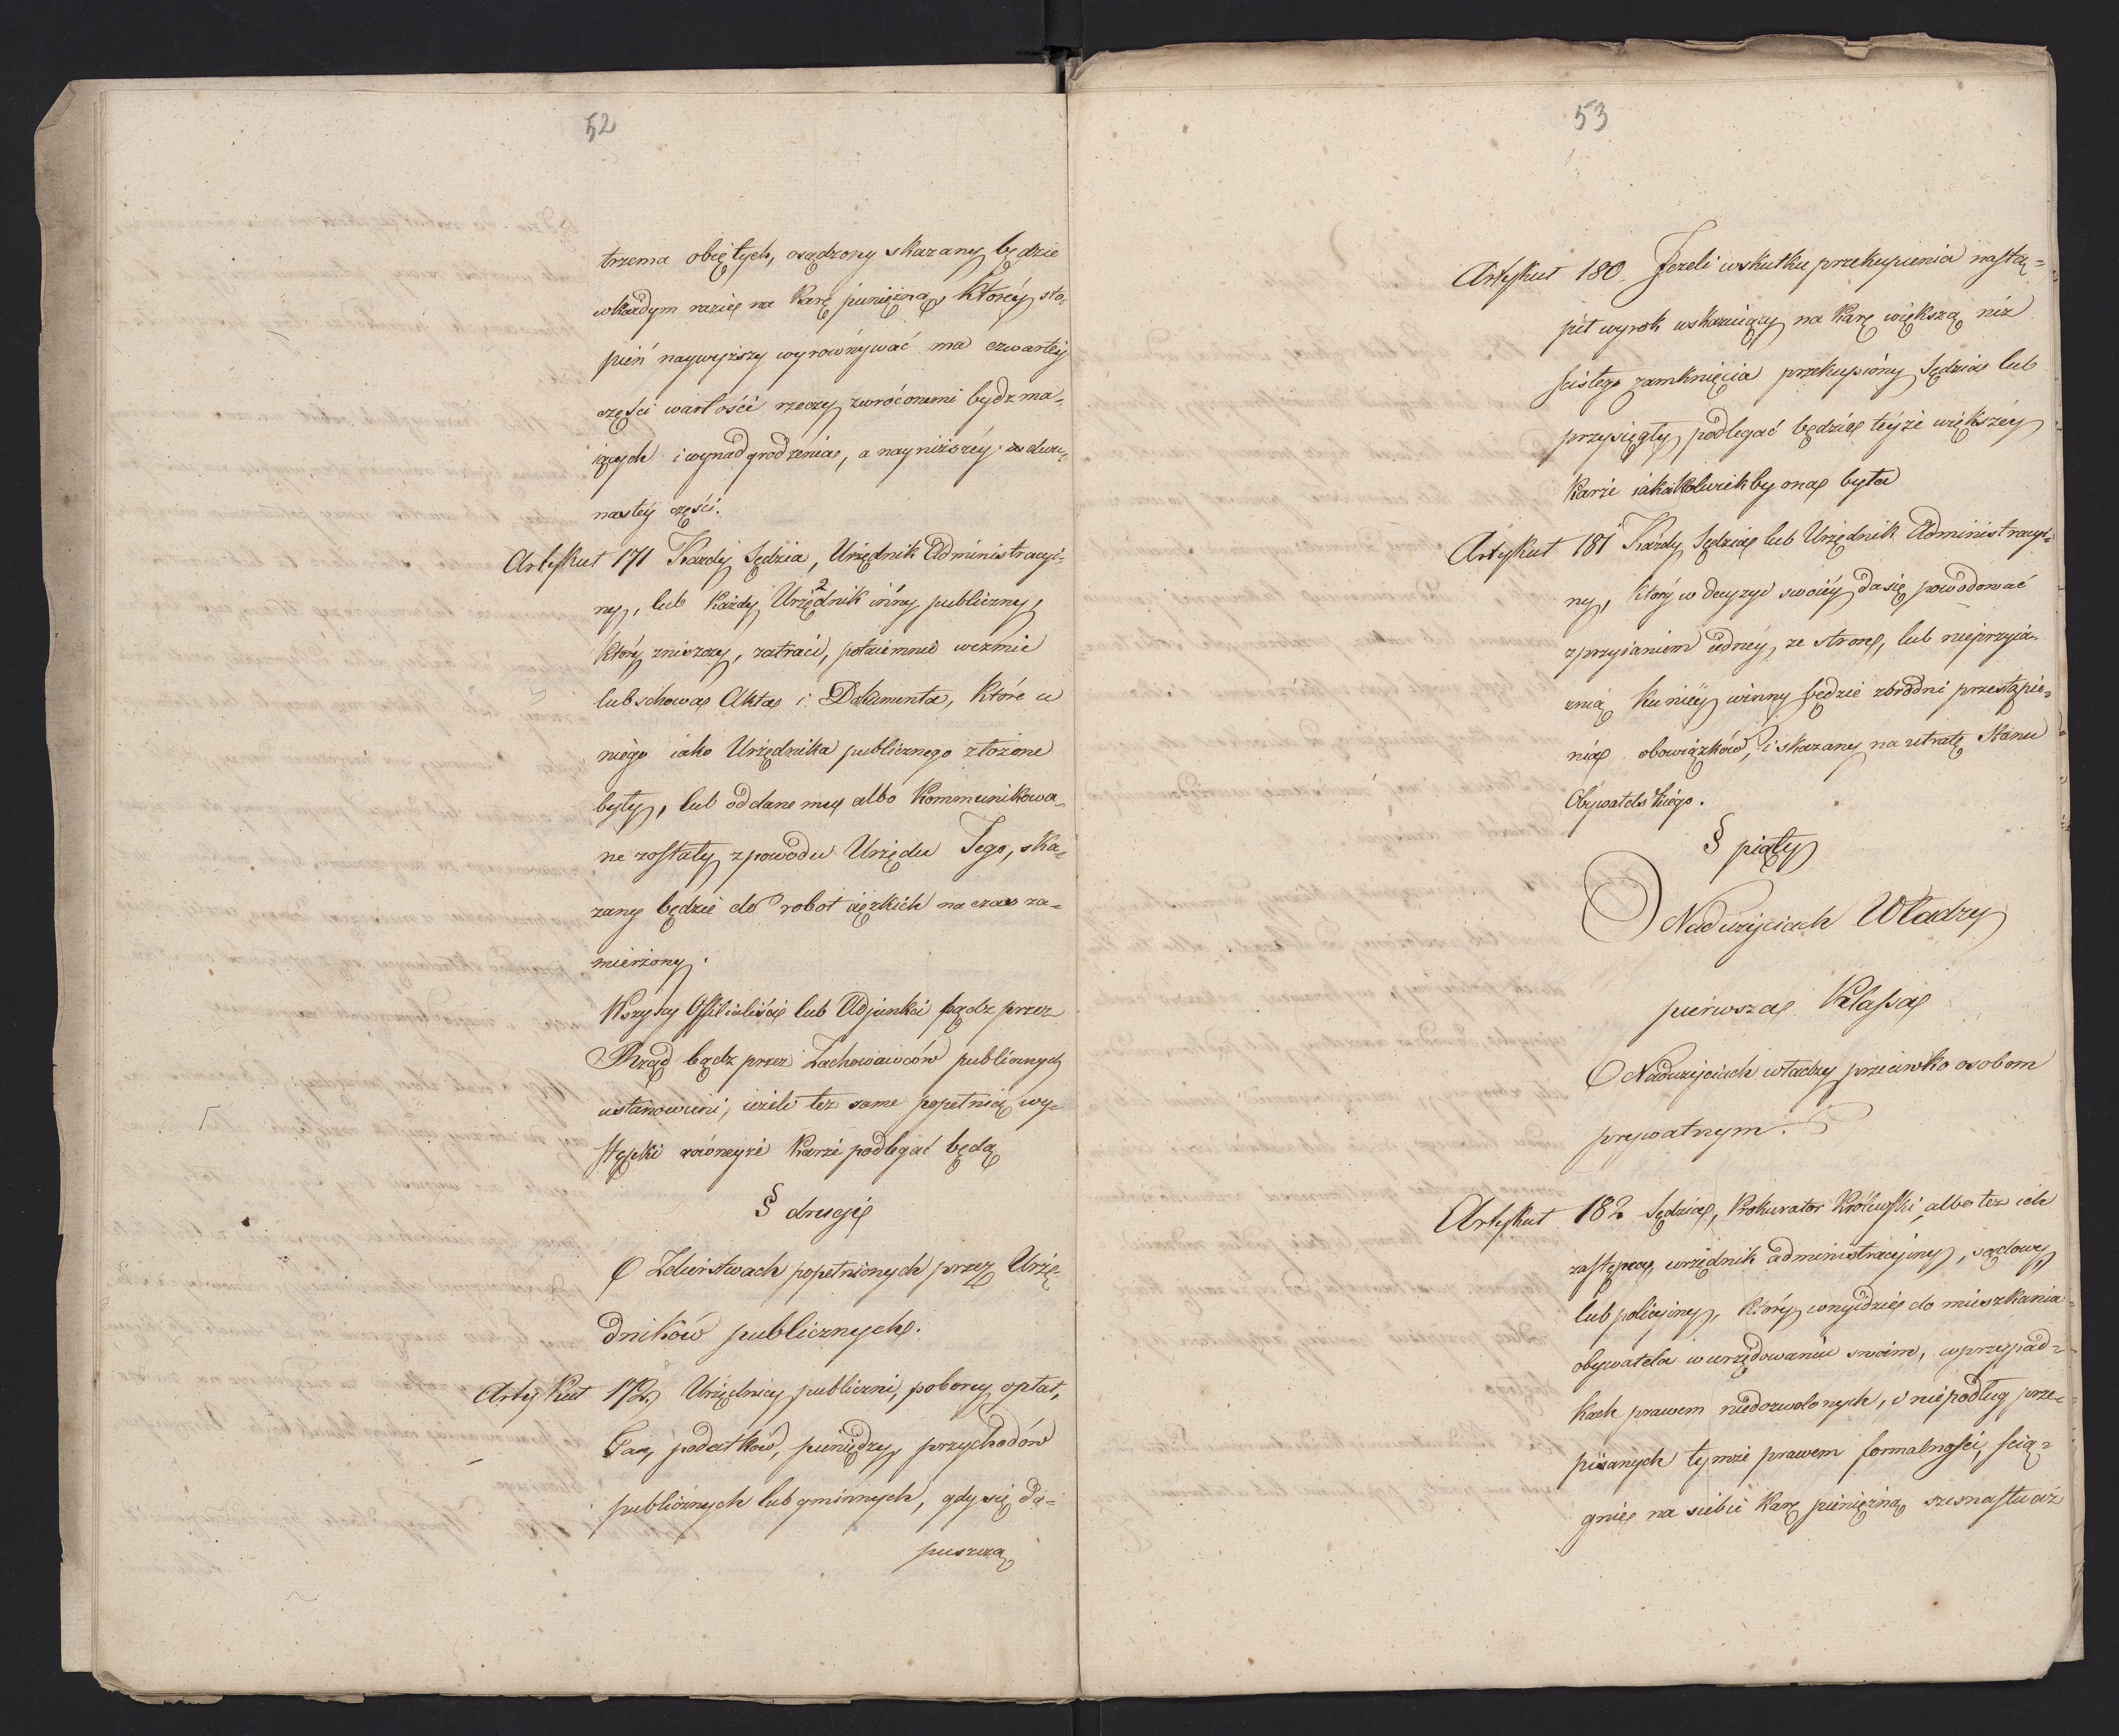 52
trzema obiętych, osądzony skazany będzie
wkażdym razie na karę pieniężną, któréy sto„
pień naywyższy wyrównywać ma czwartéy
części wartości rzeczy zwróconemi bydz ma„
iących i wynadgrodzenia, a nayniższéy dwu„
nastéy części.
Artykuł 171 Każdy Sędzia, Urzędnik Administracyi„
ny, lub każdy Urzędnik inny publiczny,
który zniszczy, zatraci, potaiemnie wezmie
lub schowa Akta i Dokumenta, które u
niego iako Urzędnika publicznego złożone
były, lub oddane mu albo kommunikowa„
ne zostały z powodu Urzędu Jego, ska„
zany będzie do robot ciężkich na czas za„
mierzony.
Wszyscy Officialiści lub Adjunkci bądz przez
Rząd bądz przez Zachowawców publicznych
ustanowieni, ieżeli też same popełnią wy„
stępki równeyże karze podlegać będą
§ drugi
O Zdzierstwach popełnionych przez Urzę„
dników publicznych.
Artykuł 172. Urzędnicy publiczni, poborcy opłat,
Tax, podatków, pieniędzy, przychodów
publicznych lub gminnych, gdy się do„
puszczą
53
Artykuł 180. Jeżeli wskutku przekupienia nastą„
pił wyrok wskazuiący na karę większą niż
scisłego zamknięcia przekupiony Sędzia lub
przysięgły, podlegać będzie téyże większéy
karze iakakolwiekby ona była
Artykuł 181 Każdy Sędzia lub Urzędnik Administracyi„
ny, który w decyzyi swoiéy da się powodować
z przyianiem iednéy, ze stron, lub nieprzyia„
znią ku niéy winny będzie zbrodni przestąpie„
nia obowiązków, i skazany na utratę Stanu
Obywatelskiego.
§ piąty
O Nadużyciach Władzy
pierwsza Klassa
O Nadużyciach władzy przeciwko osobom
prywatnym.
Artykuł 182 Sędzia, Prokurator Królewski, albo też ich
zastępcy, urzędnik administracyiny, sądowy,
lub policyiny, który wnyidzie do mieszkania
obywatela w urzędowaniu swoim, w przypad„
kach prawem niedozwolonych, i niepodług prze„
pisanych tymże prawem formalności, scią„
gnie na siebie karę pieniężną szesnastu aż